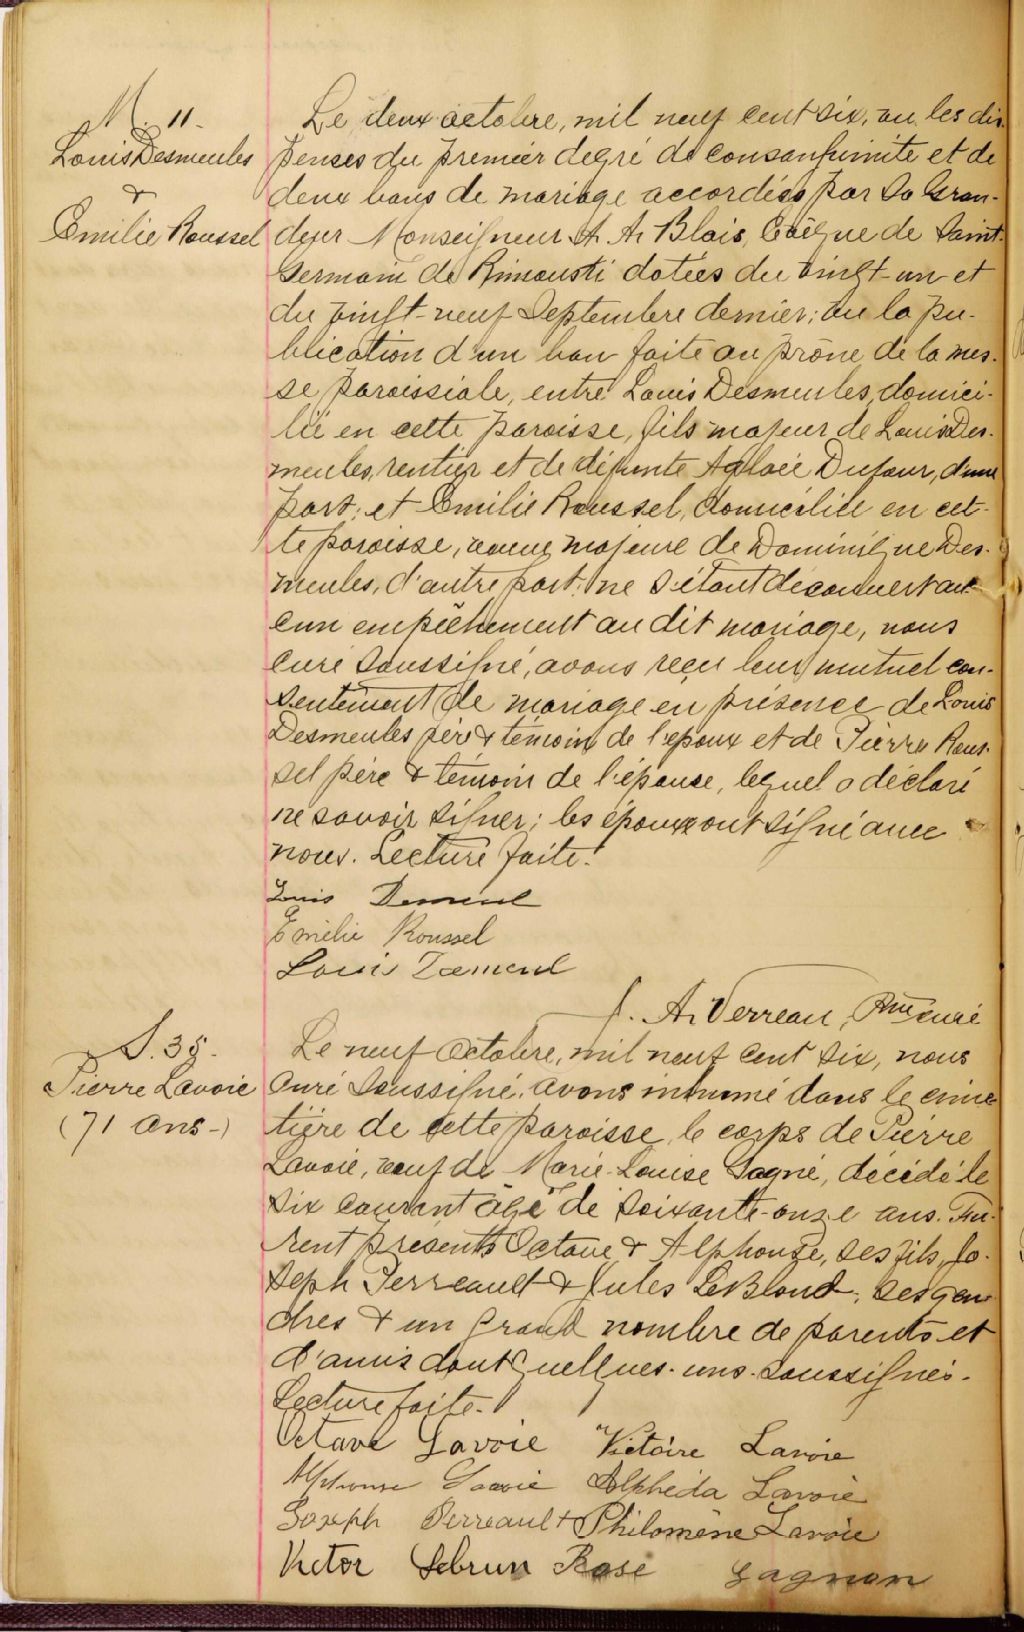 M. 11.
Louis Desmeules
&
Emilie Roussel
Le deux octobre, mil neuf cent six, vu les dis-
penses du premier degré de consanguinité et de
deux bans de mariage accordées par Sa Gran-
deur Monseigneur A. A. Blais, Evêque de Saint-
Germain de Rimouski datées du vingt-un et
du vingt-neuf Septembre dernier; vu la pu-
blication d'un ban faite au prône de la mes-
se paroissiale, entre Louis Desmeules, domici-
lié en cette paroisse, fils majeur de Louis Des-
meules, rentier et de défunte Aglaée Dufour, d'une
part; et Emilie Roussel, domiciliée en cet-
te paroisse, veuve majeure de Dominique Des-
meules, d'autre part; ne s'étant découvert au-
cun empêchement au dit mariage, nous
curé soussigné, avons reçu leur mutuel con-
sentement de mariage en présence de Louis
Desmeules père & témoin de l'époux et de Pierre Rous-
sel père & témoin de l'épouse, lequel a déclaré
ne savoir signer; les époux ont signé avec
nous. Lecture faite.
Louis Demeul
Emélie Roussel
Louis Demeul
J. A. Verreau, Ptre curé
S. 35.
Pierre Lavoie
(71 ans-)
Le neuf Octobre, mil neuf cent six, nous
Curé soussigné, avons inhumé dans le cime
tière de cette paroisse, le corps de Pierre
Lavoie, veuf de Marie-Louise Gagné, décédé le
six courant âgé de soixante-onze ans. Fu-
rent présents Octave & Alphonse, ses fils, Jo-
seph Perreault & Jules LeBlond, ses gen-
dres & un grand nombre de parents et
d'amis dont quelques-uns soussignés.
Lecture faite.
Octave Lavoie Victoire Lavoie
Alphonse Lavoie Alphéda Lavoie
Joseph Perreault Philomène Lavoie
Victor Lebrun Rose Gagnon